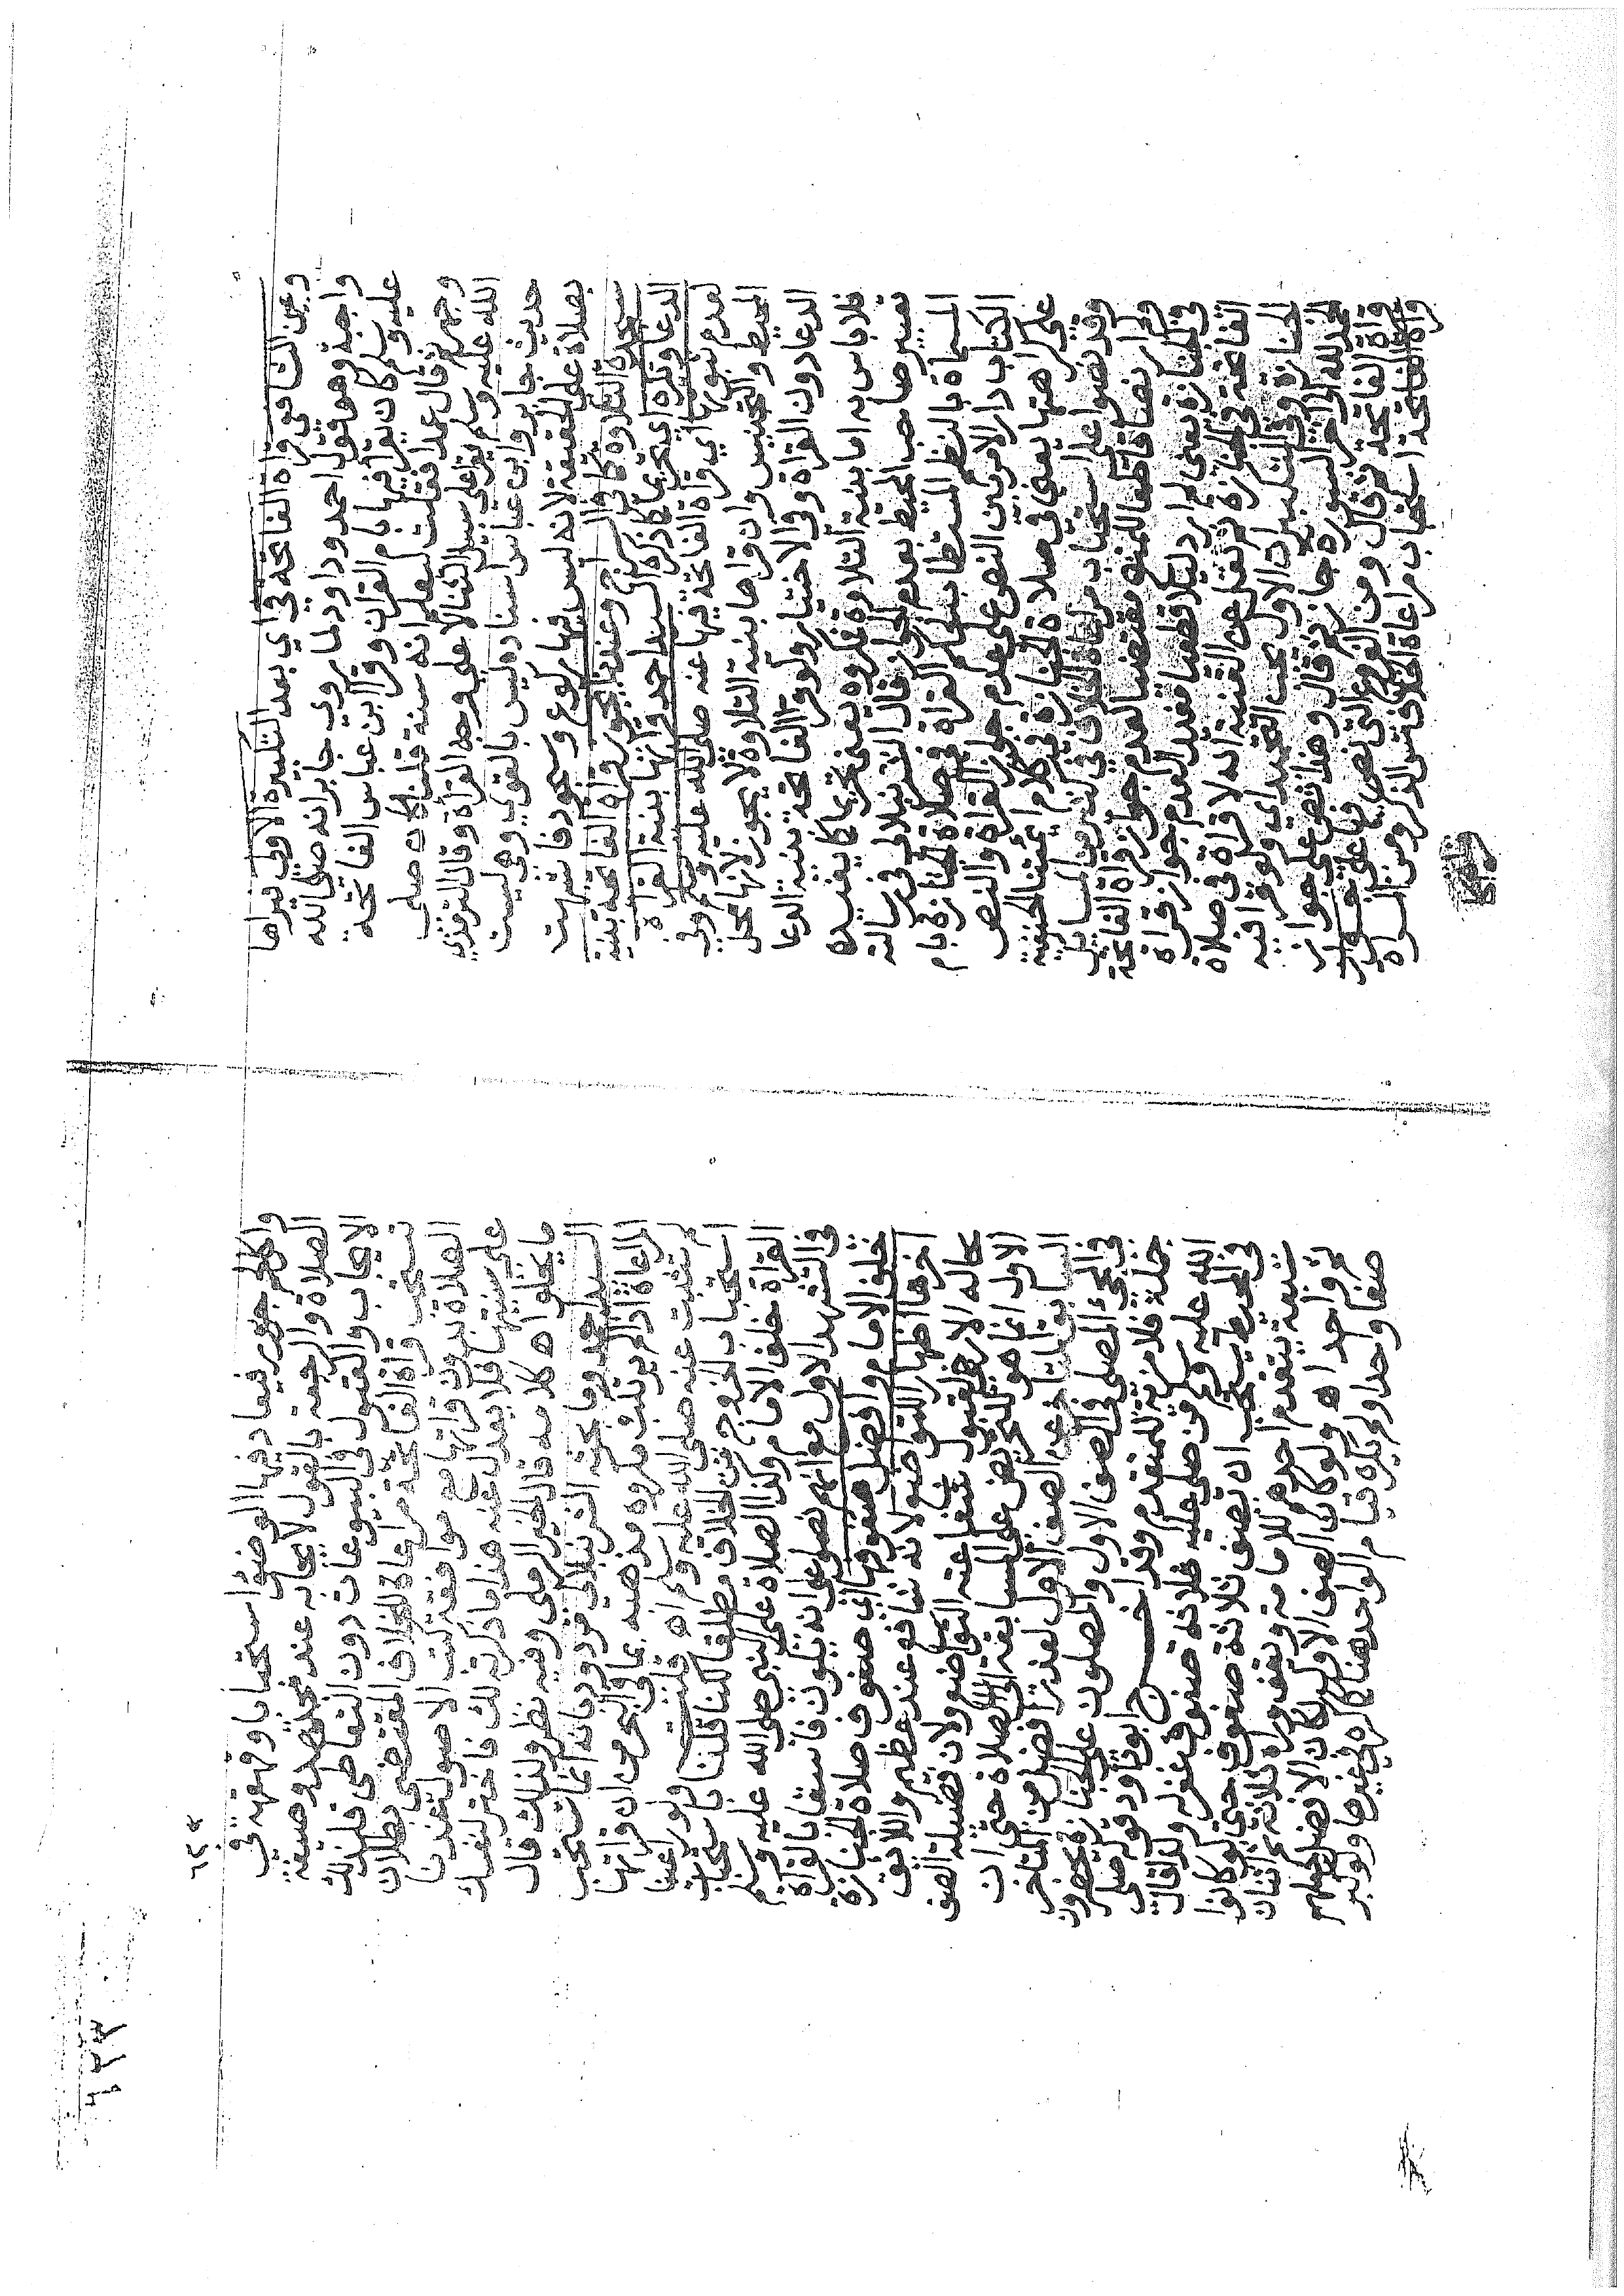 وعين الشافعي قراة الفاتحة في اي بعد التكبيرة الاولي غيراها
واجبة وهو قول احمد وداود لما روي جابر انه صلي الله
عليه وسلم كان يقرا فيها بام القران وقرا ابن عباس الفاتحة
وجهر ثم قال عمدا فعلت ليعلم انه سنة قلنا كان صلي
الله عليه وسلم يقرا علي سبيل الثنا لا علي وجه القراة وقال الترمذي
حديث جابر وابن عباس اسناده ليس بالقوي وهي ليست
بصلاة علي الحقيقة لانه ليس فيها ركوع وسجود فاشبهت
سجدة التلاوة كما في السراج وعندنا يجوز قراة الفاتحة بنية
الدعا وتكره اي تحريما كما ذكره السيد احمد قراتها بنية القراة
لعدم ثبوتها اي قراة الفاتحة فيها عنه صلي الله عليه وسلم وفي
المحيط والتجنيس وان قراها بنية التلاوة لا يجوز لانها محل
الدعا دون القراة وفي الاختيار ولو قرا الفاتحة بنية الدعا
فلا باس به اما بنية التلاوة فمكروه يعني تحريما كما يفيده
تعبير صاحب المحيط بعدم الجواز قال الشرنبلالي في رسالته
المسماة بالنظم المستطاب بحكم القراة في صلاة الجنازة بام
الكتاب دار الامر بين النص علي عدم جواز القراة والنص
علي كراهتها يعني في صلاة الجنازة في كلام ائمتنا الحنفية
وقد نصوا علي استحباب مراعاة الخلاف في كثير من المسايل
ولم ار نصا قاطعا للمنع مقتضيا لعدم جواز قراة الفاتحة
في الجنازة يعني لم ار دليلا قطعيا مفيد العدم جواز قراة
الفاتحة في الجنازة ثم نقل عن القنية انه لا قراة في صلاة
الجنازة وفي التكبيرات الاول يحب التحميد اي ولو قرا فيه
الحمد لله الي اخر السورة جاز ثم قال وهذا نص علي جواز
قراة الفاتحة ثم قال ومن الفرع التي نص فيها علي
قراة الفاتحة استحباب مراعاة الخلاف مس الذكر ومس المراة
واكل لحم جزور فيعاد فيها الوضوء استحبابا وقهقهة في
الصلاة والرجعة بالقول لا يحتاج عند
الايجاب والقبول في البيوعات دون التعاطي فلذلك
تستحب قراة الفاتحة مراعاة للخلاف المقتضي بطلان
الصلاة بدون قراتها مع موافقة تلك الاصول عندنا
علي سنيتها فلا يعدل عنه هذا ما ذكرته لك فاختر لنفسك
ما يحلو اه كلامه قال الخير الرملي وفيه نظر ولذلك قال
السيد احمد وما بحثه الشرنبلالي مردود بانه انما تستحب
المراعاة اذا لم يرتكب مكروه مذهبه بما في البحر من ان قراتها
لم تثبت عنه صلي الله عليه وسلم اه قلت ولو راعينا
استحباب الخروج من الخلاف مطلقا لكنا قلنا باستحباب
القراة خلف الامام وكذا الصلاة علي النبي صلي الله عليه وسلم
في التشهد الاول مع انهم نصوا علي انه يكون فاسقا بالقراة
خلف الامام وافضل صفوفها اي صفوف صلاة الجنازة
اخرها اظهارا للتواضع لانه شافع عند عظيم واللايق
بحاله الاخلاق لقبول شفاعته التواضع ولان فضيلة الصف
الاول انما هو للتحريض علي المسابقة الي الصلاة حتي ان
السابق اذا تاخر عن الصف الاول لعذر افضل من المتاخر
في المجي المصلي في الصف الاول والمصلون علي الجنازة يحضرون
جملة فلا مزية للمتقدم وقد اخرج ابو داود قوله صلي
الله عليه وسلم من صلي عليه ثلاثة صفوف غفر له ولذا قال
في المحيط يستحب ان تصف ثلاثة صفوف حتي لو كانوا
سبعة يتقدم احدهم للامامة ويقف وراه ثلاثة ثم اثنان
ثم واحد اه ولو كان الصف الاول لكان الافضل جعلهم
صفا واحدا ولم يكره قيام الواحد هنا كما كره في غيرها ولو لم